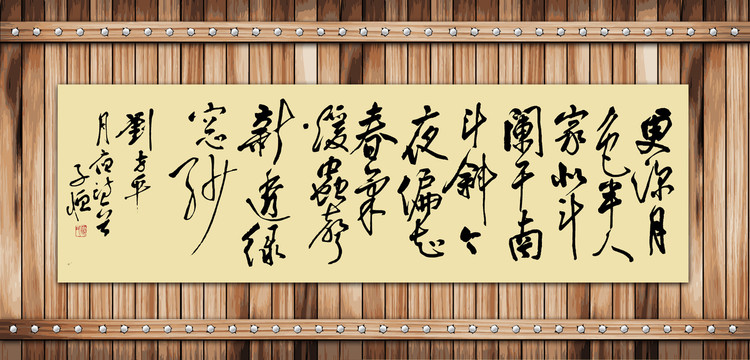 更深月
色半人
家北斗
闌干南
斗斜今
夜偏知
春氣
暖蟲聲
新透綠
窓紗
劉方平
月夜詩
子恒